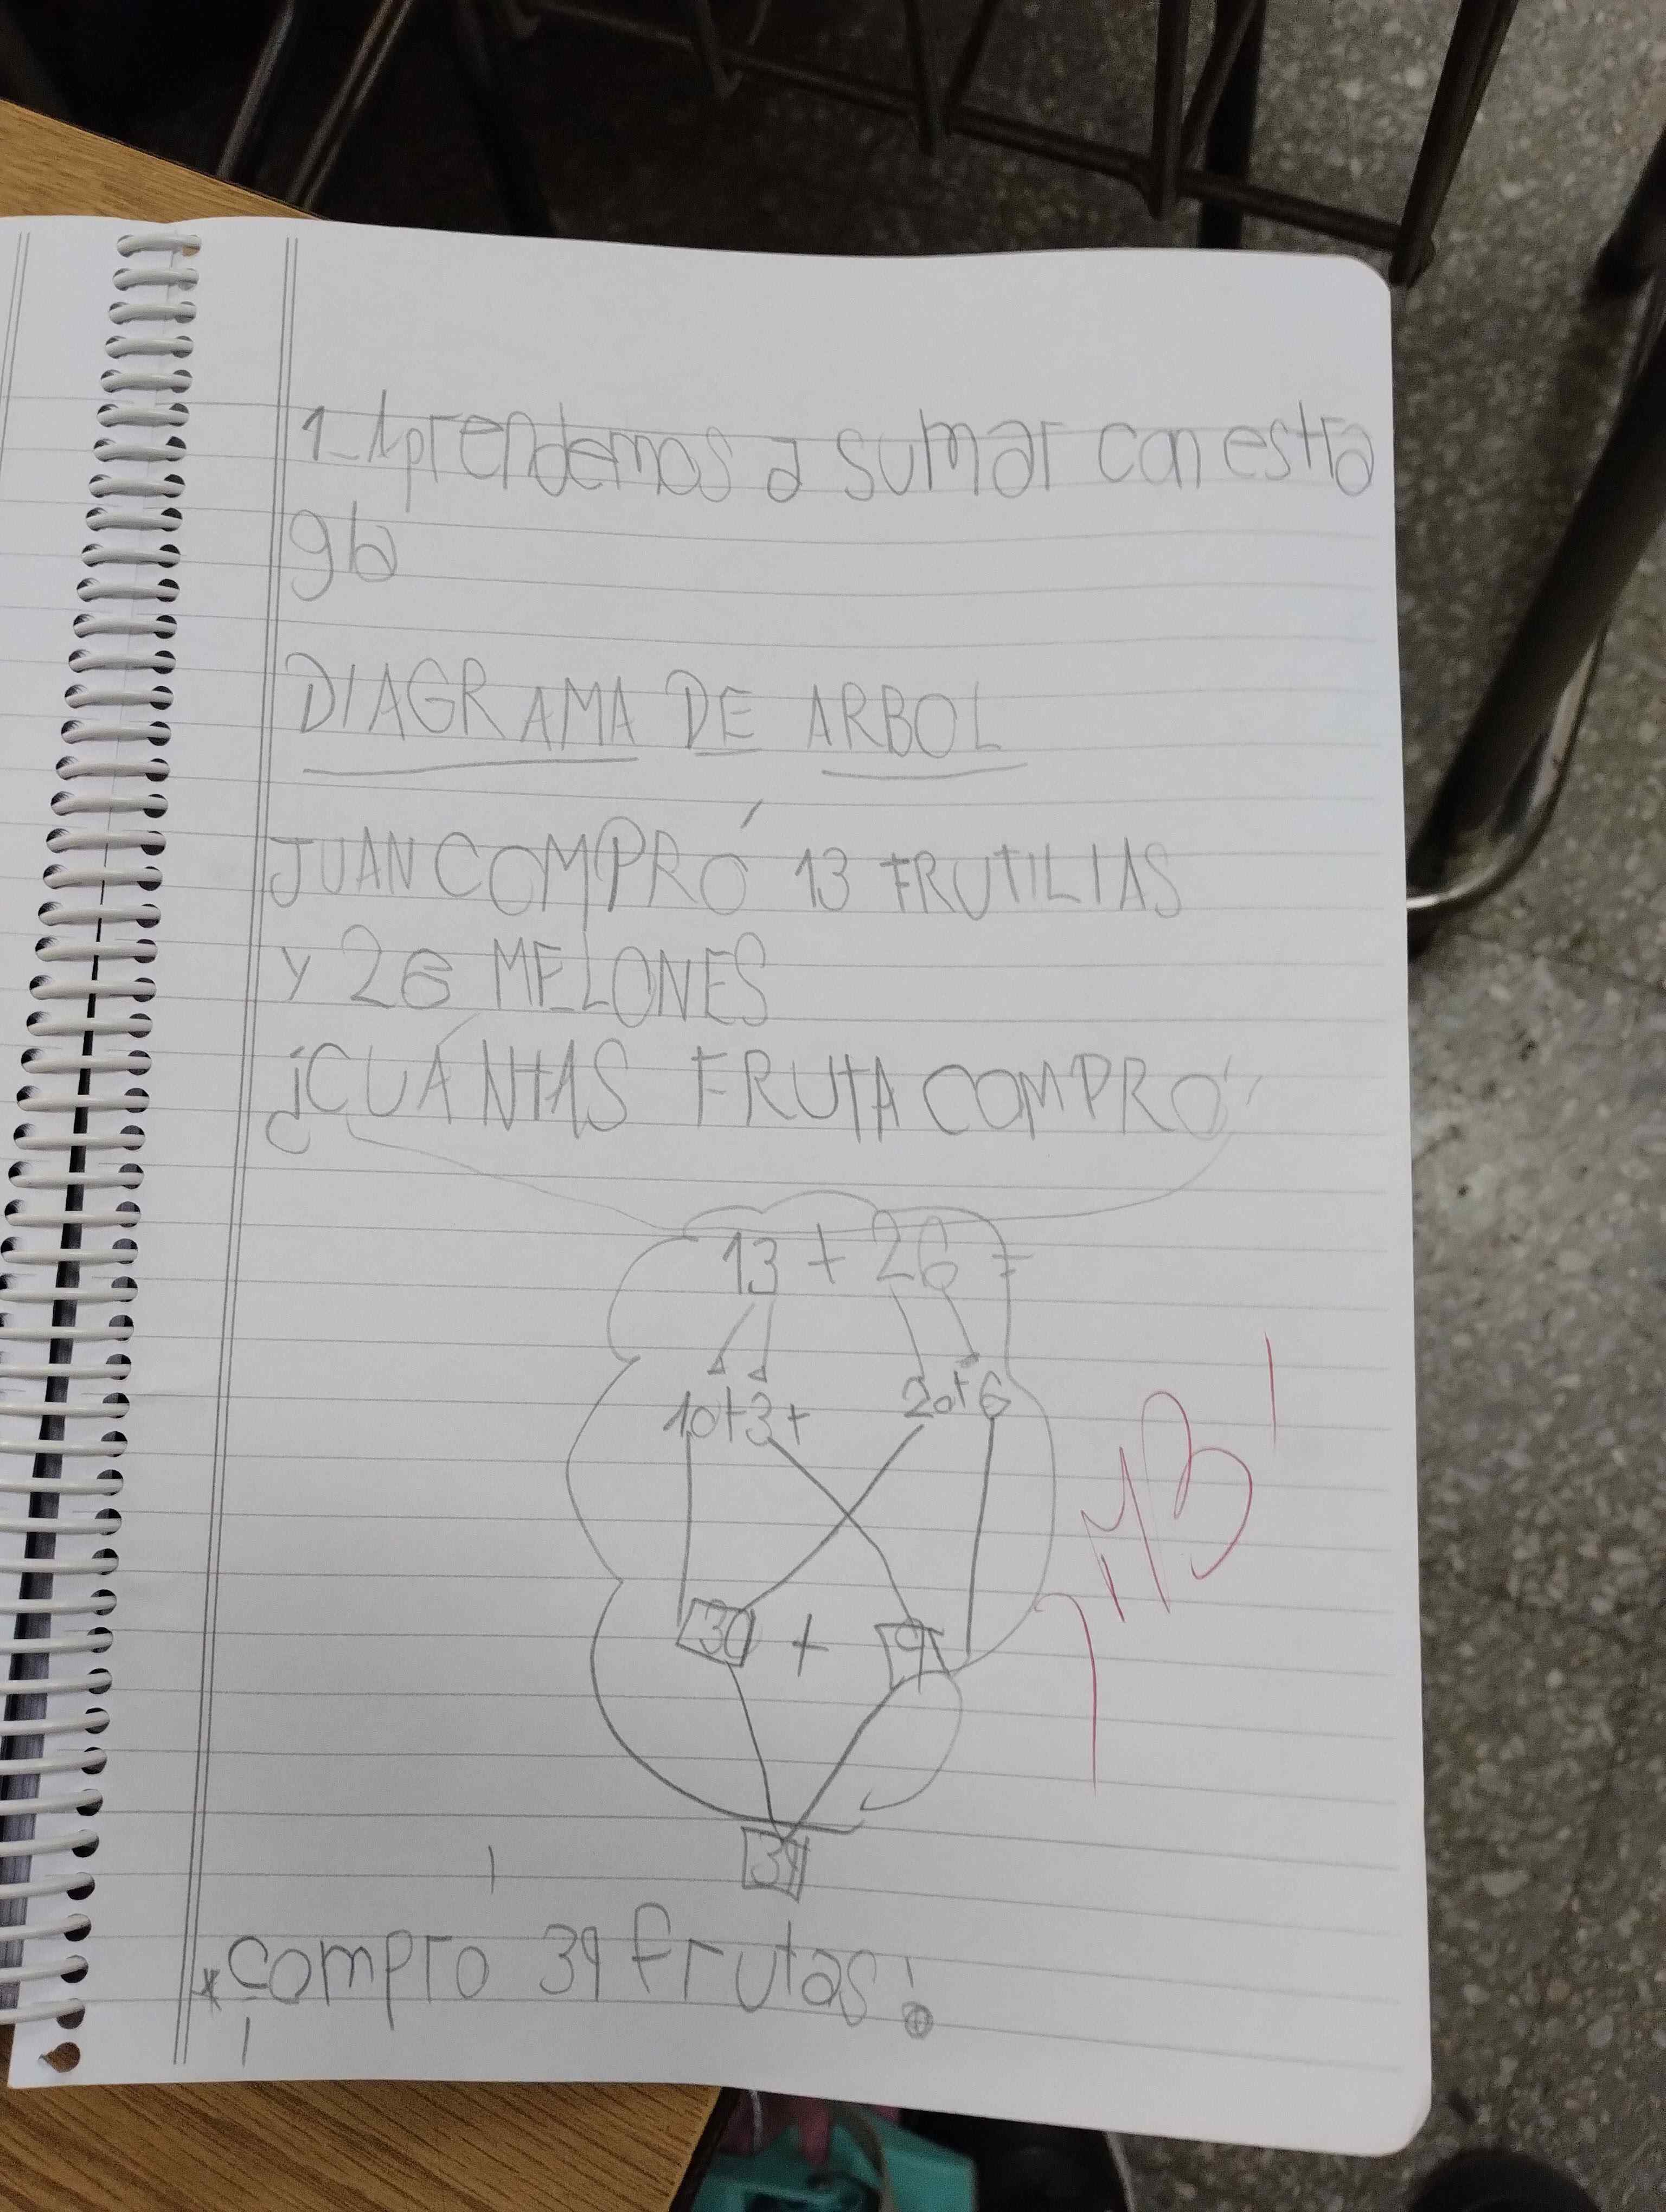 1_Aprendemos a sumar con estra
gia
DIAGRAMA DE ARBOL
JUAN COMPRÓ 13 FRUTILIAS
Y 26 MELONES
¿CUÁNTAS FRUTA COMPRÓ
13 + 26 =
10+3+ 20+6
30 + 9
39
* compro 39 frutas!
MB